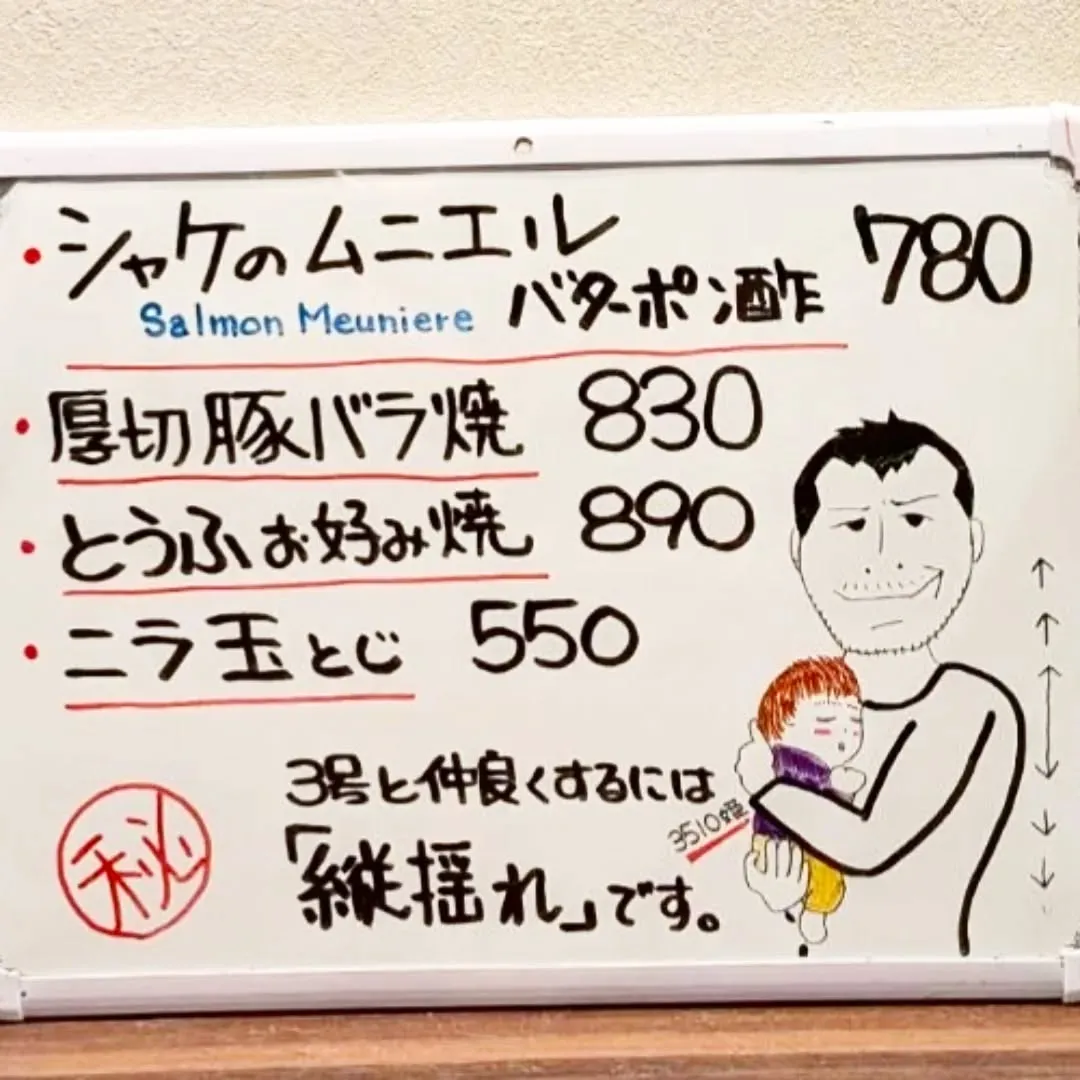 ・シャケのムニエル 780
Salmon Meuniere バターポン酢
・厚切豚バラ焼 830
・とうふお好み焼 890
・ニラ玉とじ 550
3号と仲良くするには
「縦揺れ」です。
㊙
3510姫